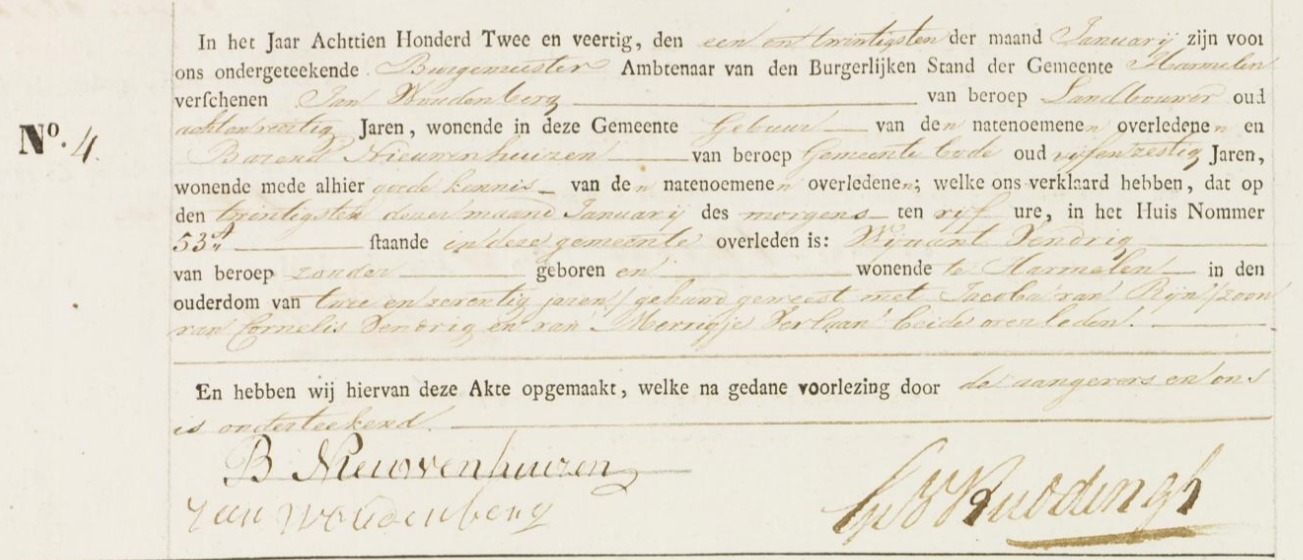 In het Jaar Achttien Honderd Twee en veertig, den een en twintigsten der maand Januarij zijn voor
ons ondergeteekende Burgemeester Ambtenaar van den Burgerlijken Stand der Gemeente Harmelen
verschenen Jan Woudenberg van beroep Landbouwer oud
acht en veertig Jaren, wonende in deze Gemeente Gebuur van den natenoemenen overledenen en
Barend Nieuwenhuizen van beroep Gemeente bode oud vijfenzestig Jaren,
wonende mede alhier goede kennis van den natenoemenen overledenen; welke ons verklaard hebben, dat op
No. 4.
den twintigsten dezer maand Januarij des morgens ten vijf ure, in het Huis Nommer
53A staande in deze gemeente overleden is: Wijnant Dendrig
van beroep zonder geboren en wonende te Harmelen in den
ouderdom van twee en zeventig jaren/ gehuwd geweest met Jacoba van Rijn/zoon
van Cornelis Dendrig en van Merrigje Verlaan beide overleden.
En hebben wij hiervan deze Akte opgemaakt, welke na gedane voorlezing door de aangevers en ons
is onderteekend.
B Nieuwenhuizen
Jan Woudenberg